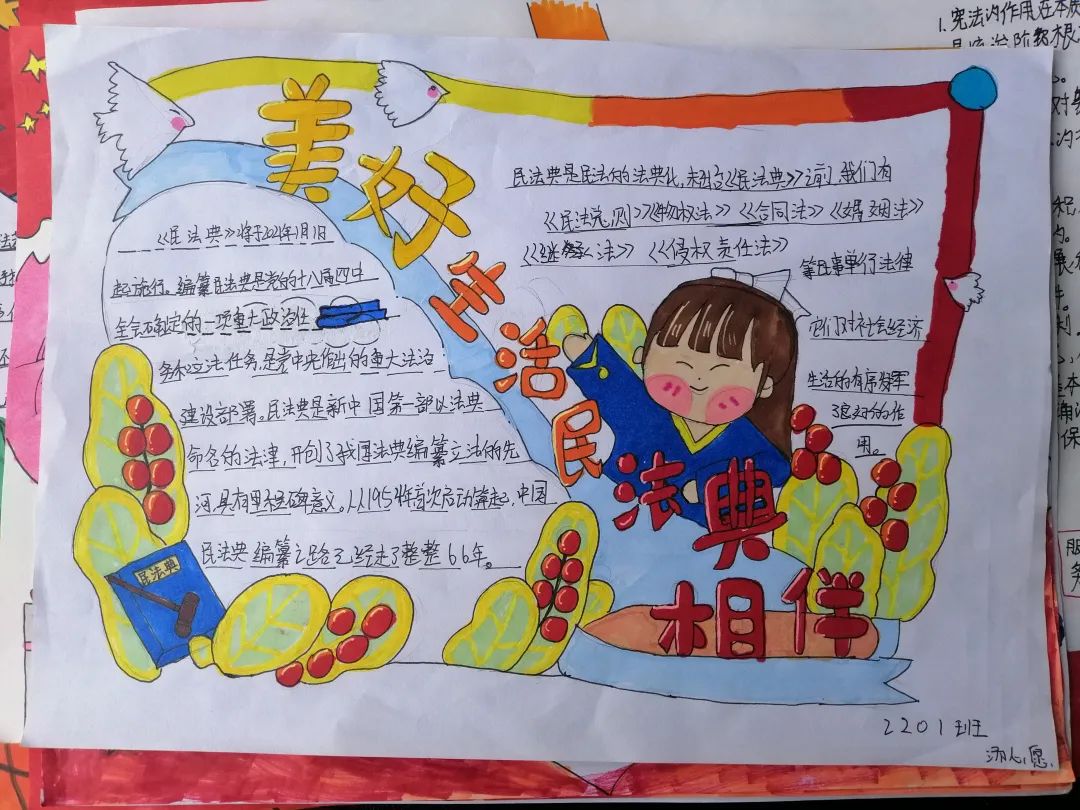 美好生活民法典相伴
《民法典》将于2021年1月1日
起施行。编纂民法典是党的十八届四中
全会确定的一项重大政治任
务和立法任务,是党中央作出的重大法治
建设部署。民法典是新中国第一部以法典
命名的法律,开创了我国法典编纂立法的先
河,具有里程碑意义。从1954年首次启动算起,中国
民法典编纂之路已经走了整整66年。
民法典
民法典是民法的法典化,未出台《民法典》之前,我们有
《民法总则》《物权法》《合同法》《婚姻法》
《继承法》《侵权责任法》
等民事单行法律
它们对社会经济
生活的有序发挥
了良好的作
用。
2201班
心愿
1.宪法的作用在本质